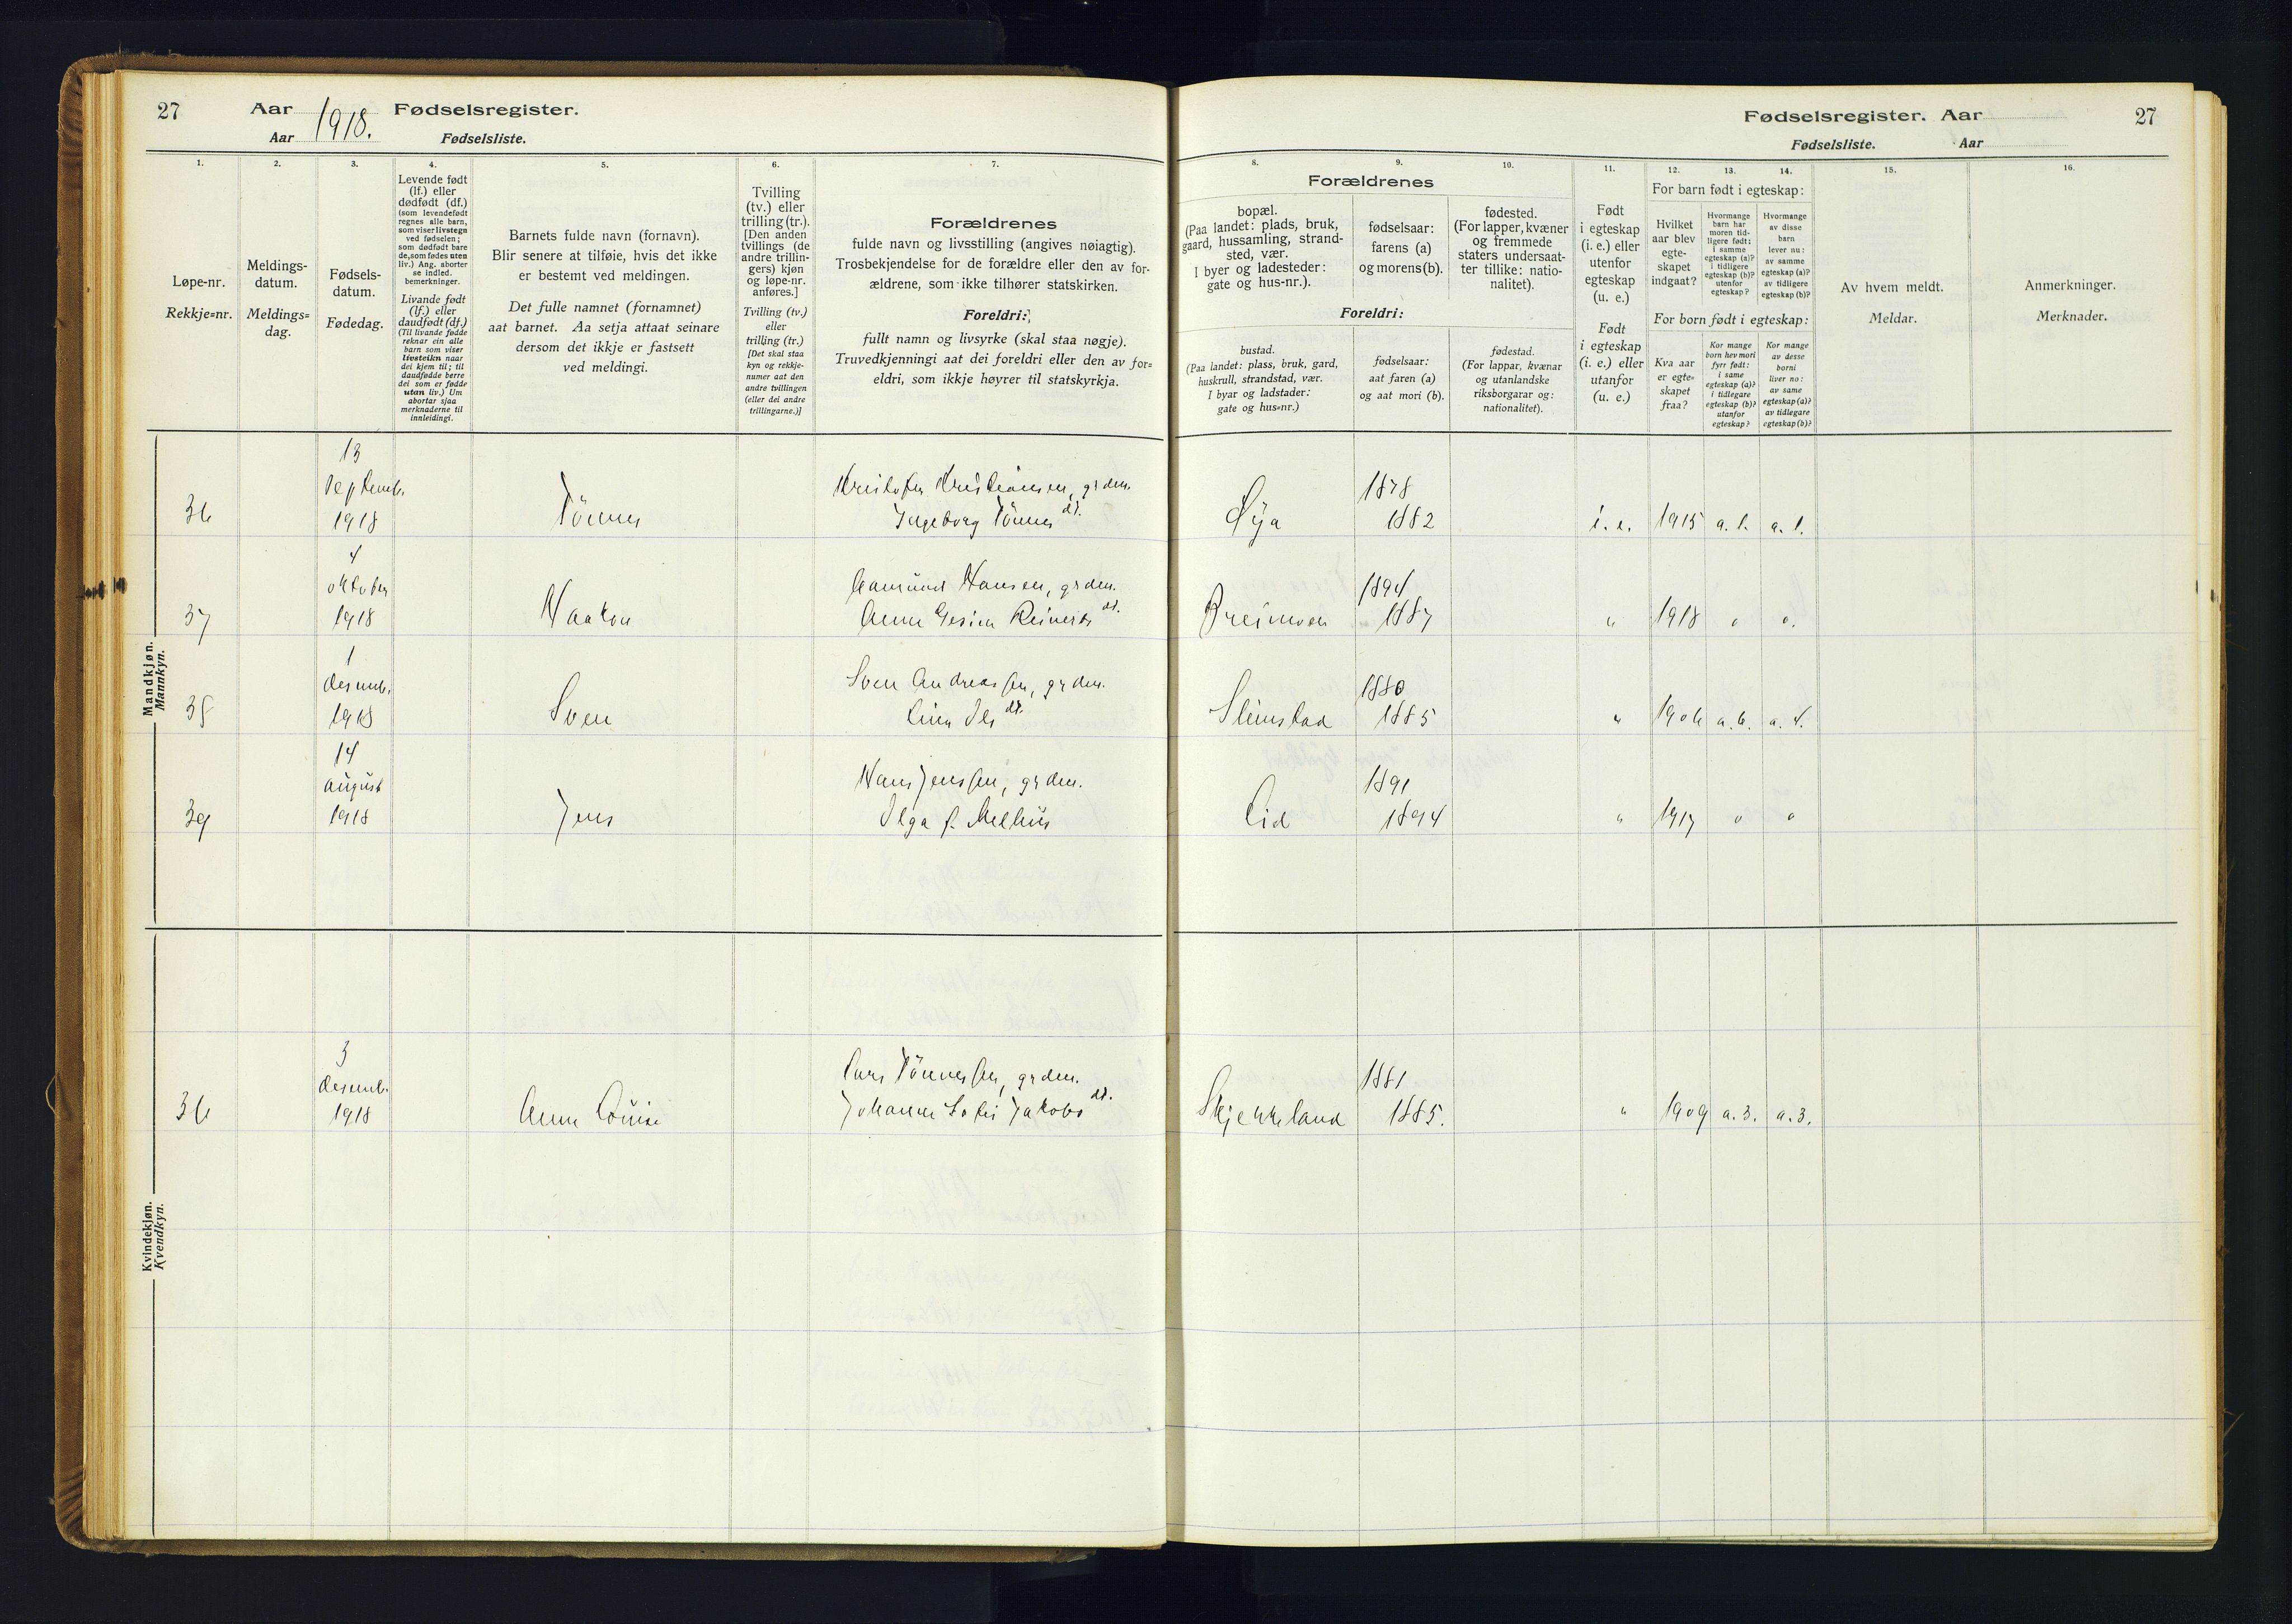 27
Aar 1918. Fødselsregister.
Aar Fødselsliste.
1.
2.
3.
4.
5.
6.
7.
Løpe-nr.
Rekkje=nr.
Meldings-
datum.
Meldings=
dag.
Fødsels-
datum.
Fødedag.
Levende født
(lf.) eller
dødfødt (df.)
(som levendefødt
regnes alle barn,
som viser livstegn
ved fødselen;
som dødfødt bare
de, som fødes uten
liv.) Ang. aborter
se indled.
bemerkninger.
Livande født
(lf.) eller
daudfødt (df.)
(Til livande fødde
reknar ein alle
barn som viser
livsteikn naar
dei kjem til; til
daudfødde berre
dei som er fødde
utan liv.) Um
abortar sjaa
merknaderne til
innleidingi.
Barnets fulde navn (fornavn).
Blir senere at tilføie, hvis det ikke
er bestemt ved meldingen.
Det fulle namnet (fornamnet)
aat barnet. Aa setja attaat seinare
dersom det ikkje er fastsett
ved meldingi.
Tvilling
(tv.) eller
trilling (tr.).
[Den anden
tvillings (de
andre trillin-
gers) kjøn
og løpe-nr.
anføres.]
Tvilling (tv.)
eller
trilling (tr.)
[Det skal staa
kyn og rekkje-
numer aat den
andre tvillingen
(eller dei andre
trillingarne.)]
Forældrenes
fulde navn og livsstilling (angives nøiagtig).
Trosbekjendelse for de forældre eller den av for-
ældrene, som ikke tilhører statskirken.
Foreldri:
fullt namn og livsyrke (skal staa nøgje).
Truvedkjenningi aat dei foreldri eller den av for=
eldri, som ikkje høyrer til statskyrkja.
Mandkjøn.
Mannkyn.
36
13
septemb.
1918
Tönnes
Kristofer Kristiansen, grdm.
Ingeborg Tönnes dt.
37
4
oktober
1918
Haakon
Aamund Hansen, grdm.
Anne Gesine Reiners dt.
38
1
desemb.
1918
Sven
Sven Andreassen, grdm.
Lina Ols dt.
39
14
august
1918
Jens
Hans Jenssen, grdm.
Olga f. Melhüs
Kvindekjøn.
Kvendkyn.
36
3
desemb.
1918
Anne Loüise
Lars Tönnessen, grdm.
Johanne Sofie Jakobs dt.
Fødselsregister. Aar
27
Fødselsliste. Aar
8.
9.
10.
11.
12.
13.
14.
15.
16.
Forældrenes
bopæl.
(Paa landet: plads, bruk,
gaard, hussamling, strand-
sted, vær.
I byer og ladesteder:
gate og hus-nr.).
fødselsaar:
farens (a)
og morens (b).
fødested.
(For lapper, kvæner
og fremmede
staters undersaat-
ter tillike: natio-
nalitet).
Foreldri:
bustad.
(Paa landet: plass, bruk, gard,
huskrull, strandstad, vær.
I byar og ladstader:
gate og hus=nr.)
fødselsaar:
aat faren (a)
og aat mori (b).
fødestad.
(For lappar, kvænar
og utanlandske
riksborgarar og:
nationalitet).
Født
i egteskap
(i. e.) eller
utenfor
egteskap
(u. e.)
Født
i egteskap
(i. e.) eller
utanfor
(u. e.)
For barn født i egteskap:
Hvilket
aar blev
egte-
skapet
indgaat?
Hvormange
barn har
moren tid-
ligere født:
i samme
egteskap (a)?
i tidligere
egteskap (b)?
utenfor
egteskap?
Hvormange
av disse
barn
lever nu:
av samme
egteskap (a)?
av tidligere
egteskap (b)?
For born født i egteskap:
Kva aar
er egte=
skapet
fraa?
Kor mange
born hev mori
fyrr født:
i same
egteskap (a)?
i tidlegare
egteskap (b)?
utanfor
egteskap?
Kor mange
av desse
borni
liver no:
av same
egteskap (a)?
av tidlegare
egteskap (b)?
Av hvem meldt.
Meldar.
Anmerkninger.
Merknader.
Øya 1878 1882 i. e. 1915 a. 1. a. 1.
Breimoen 1894 1887 " 1918 o o.
Slimstad 1880 1885 " 1906 a. 6. a. 4.
Eid 1891 1894 " 1917 o o
Skjekkeland 1881 1885. " 1909 a. 3. a. 3.